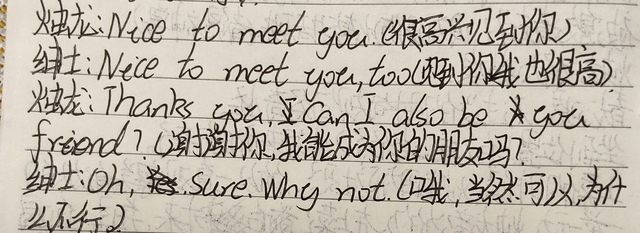 烛龙:Nice to meet you.(很高兴见到你)
绅士:Nece to meet you,too(遇到你我也很高)
烛龙:Thanks you, I Can I also be you
friend?(谢谢你,我能成为你的朋友吗?
绅士:Oh, Sure. Why not.(哦,当然可以,为什
么不行)